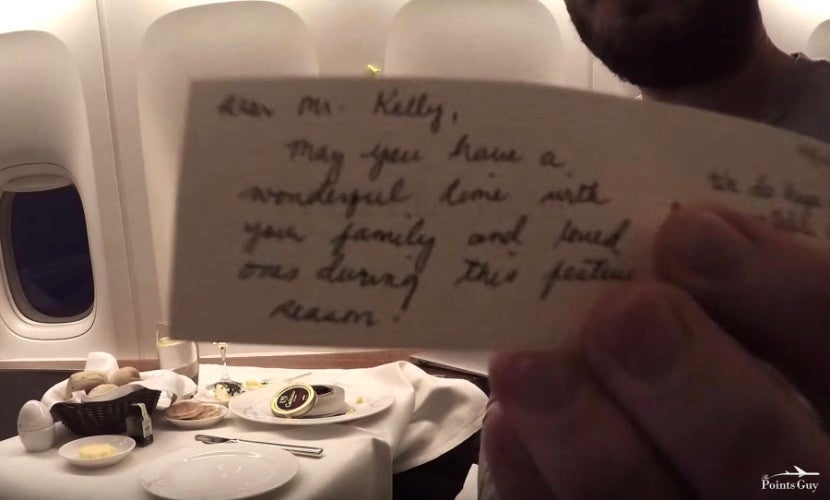 Dear Mr. Kelly,
May you have a
wonderful time with
your family and loved
ones during this festive
season!
We do hope
The
Points Guy